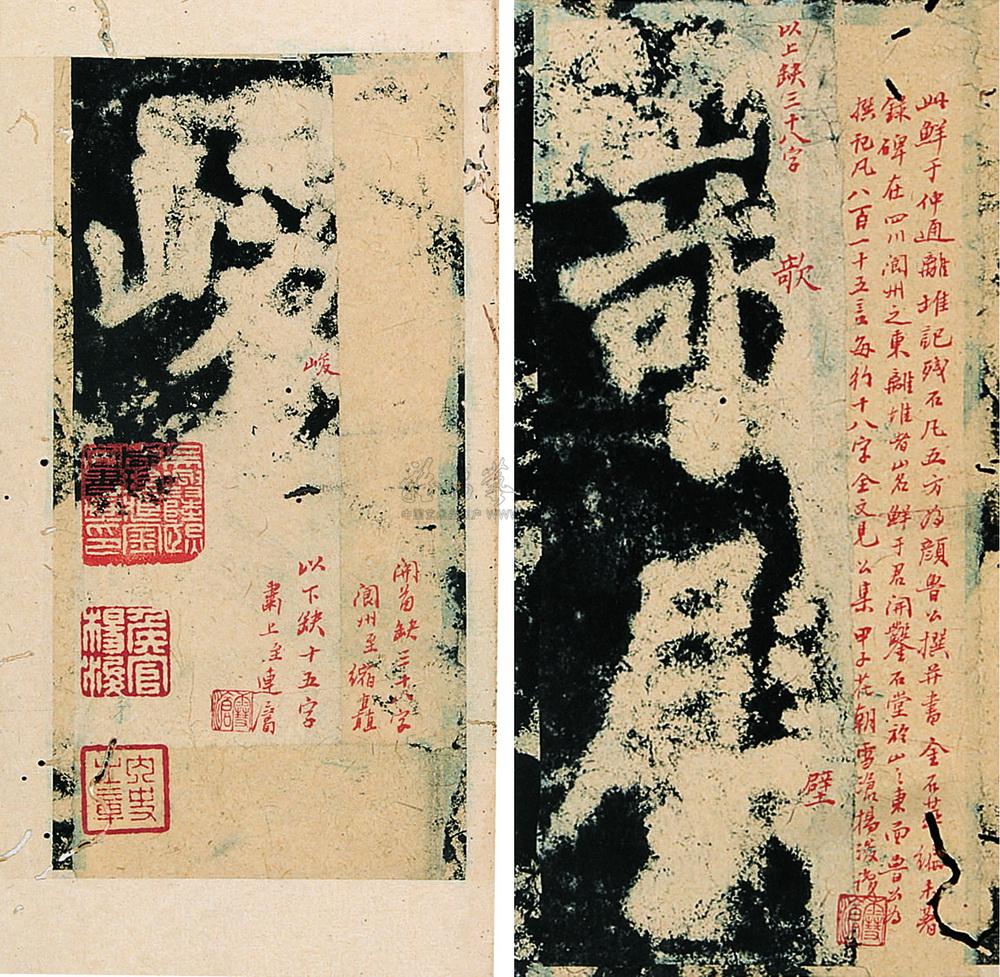 此鮮于仲通離堆記殘石凡五方為顏魯公撰并書金石萃編未著
錄碑在四川閬州之東離堆者山名鮮于君開鑿石堂於山之東面魯公為
撰記凡八百一十五言每行十八字全文見公集甲子花朝雪滄楊浚
以上缺三十八字
欹
壁
開首缺三十八字
閬州至縮矗
峻
以下缺十五字
肅上至連
雪滄
侯官楊浚
內史之章
雪滄